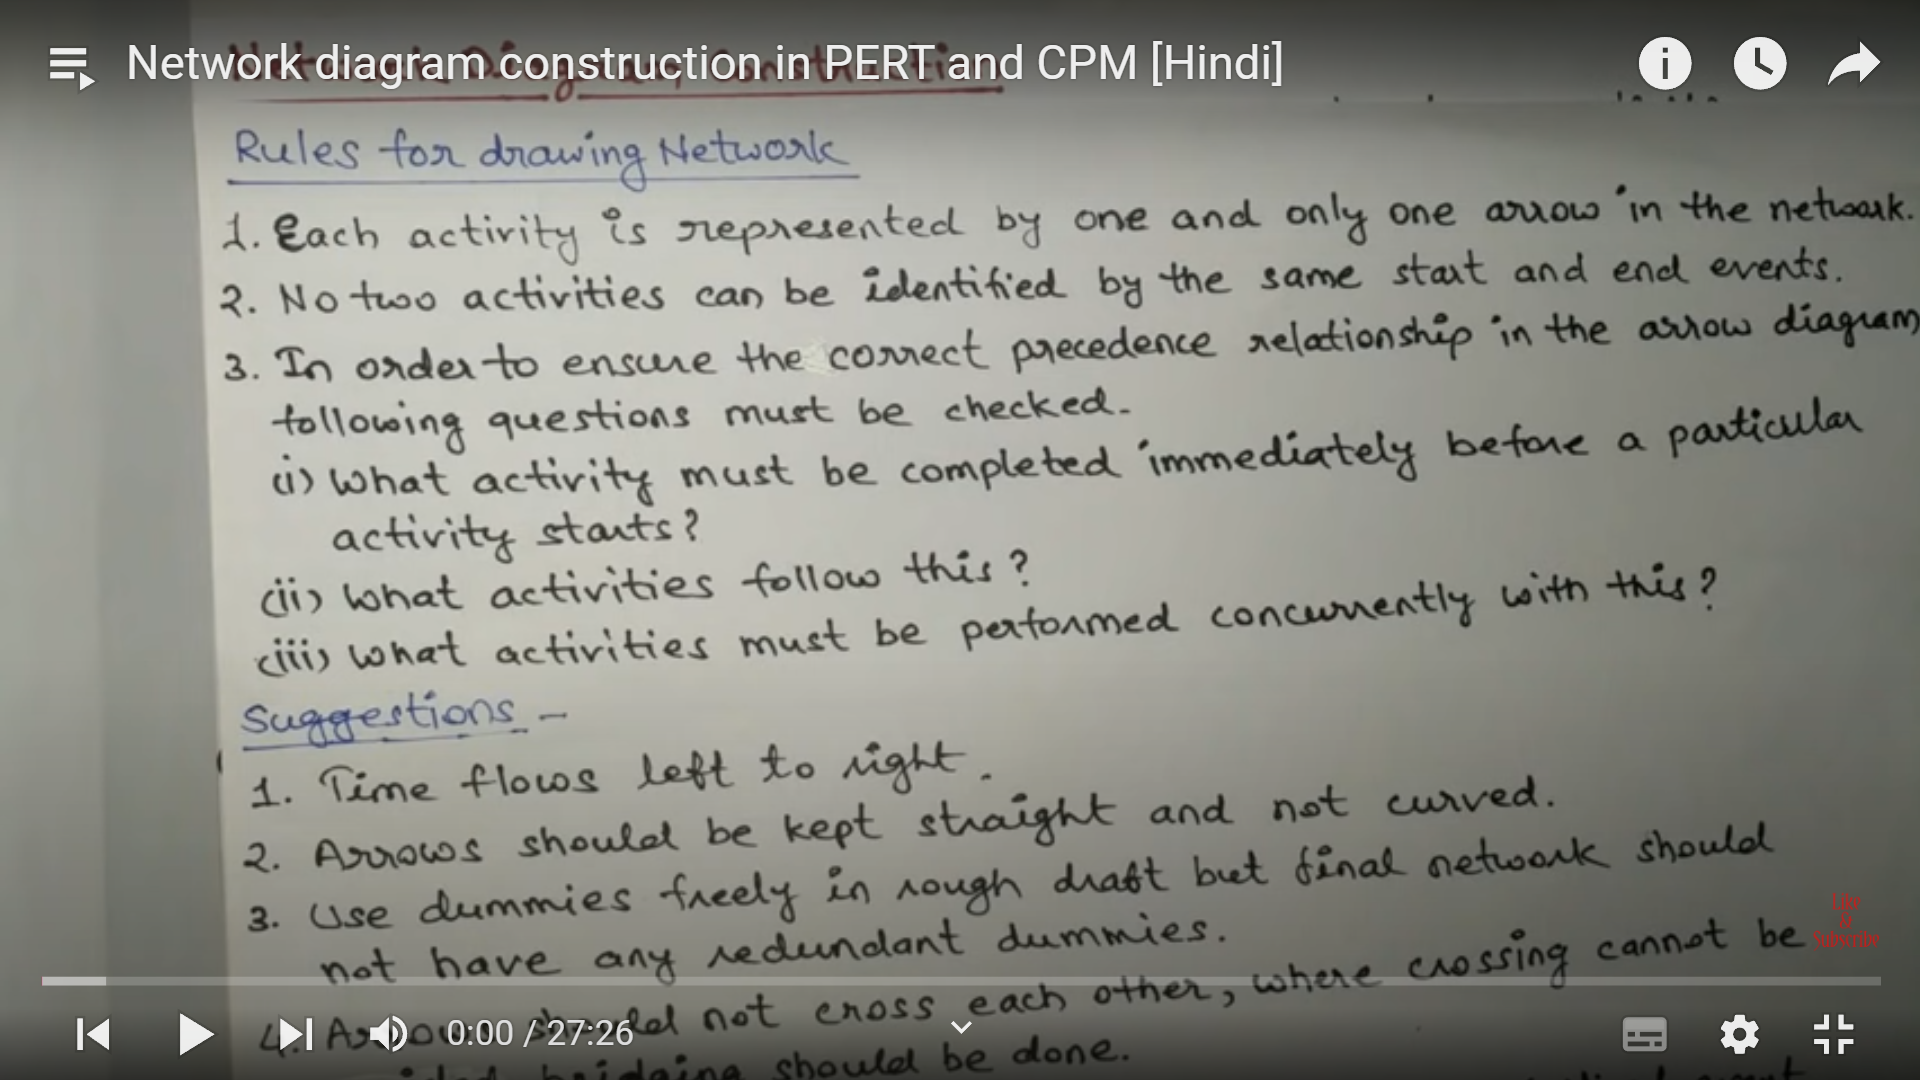 Network diagram construction in PERT and CPM [Hindi]
Rules for drawing Network
1. Each activity is represented by one and only one arrow in the network.
2. No two activities can be identified by the same start and end events.
3. In order to ensure the correct precedence relationship in the arrow diagram
following questions must be checked.
(i) What activity must be completed immediately before a particular
activity starts?
(ii) What activities follow this?
(iii) What activities must be performed concurrently with this?
Suggestions -
1. Time flows left to right.
2. Arrows should be kept straight and not curved.
3. Use dummies freely in rough draft but final network should
not have any redundant dummies.
Like
&
Subscribe
4. Arrows should not cross each other, where crossing cannot be
0:00 / 27:26
bridging should be done.